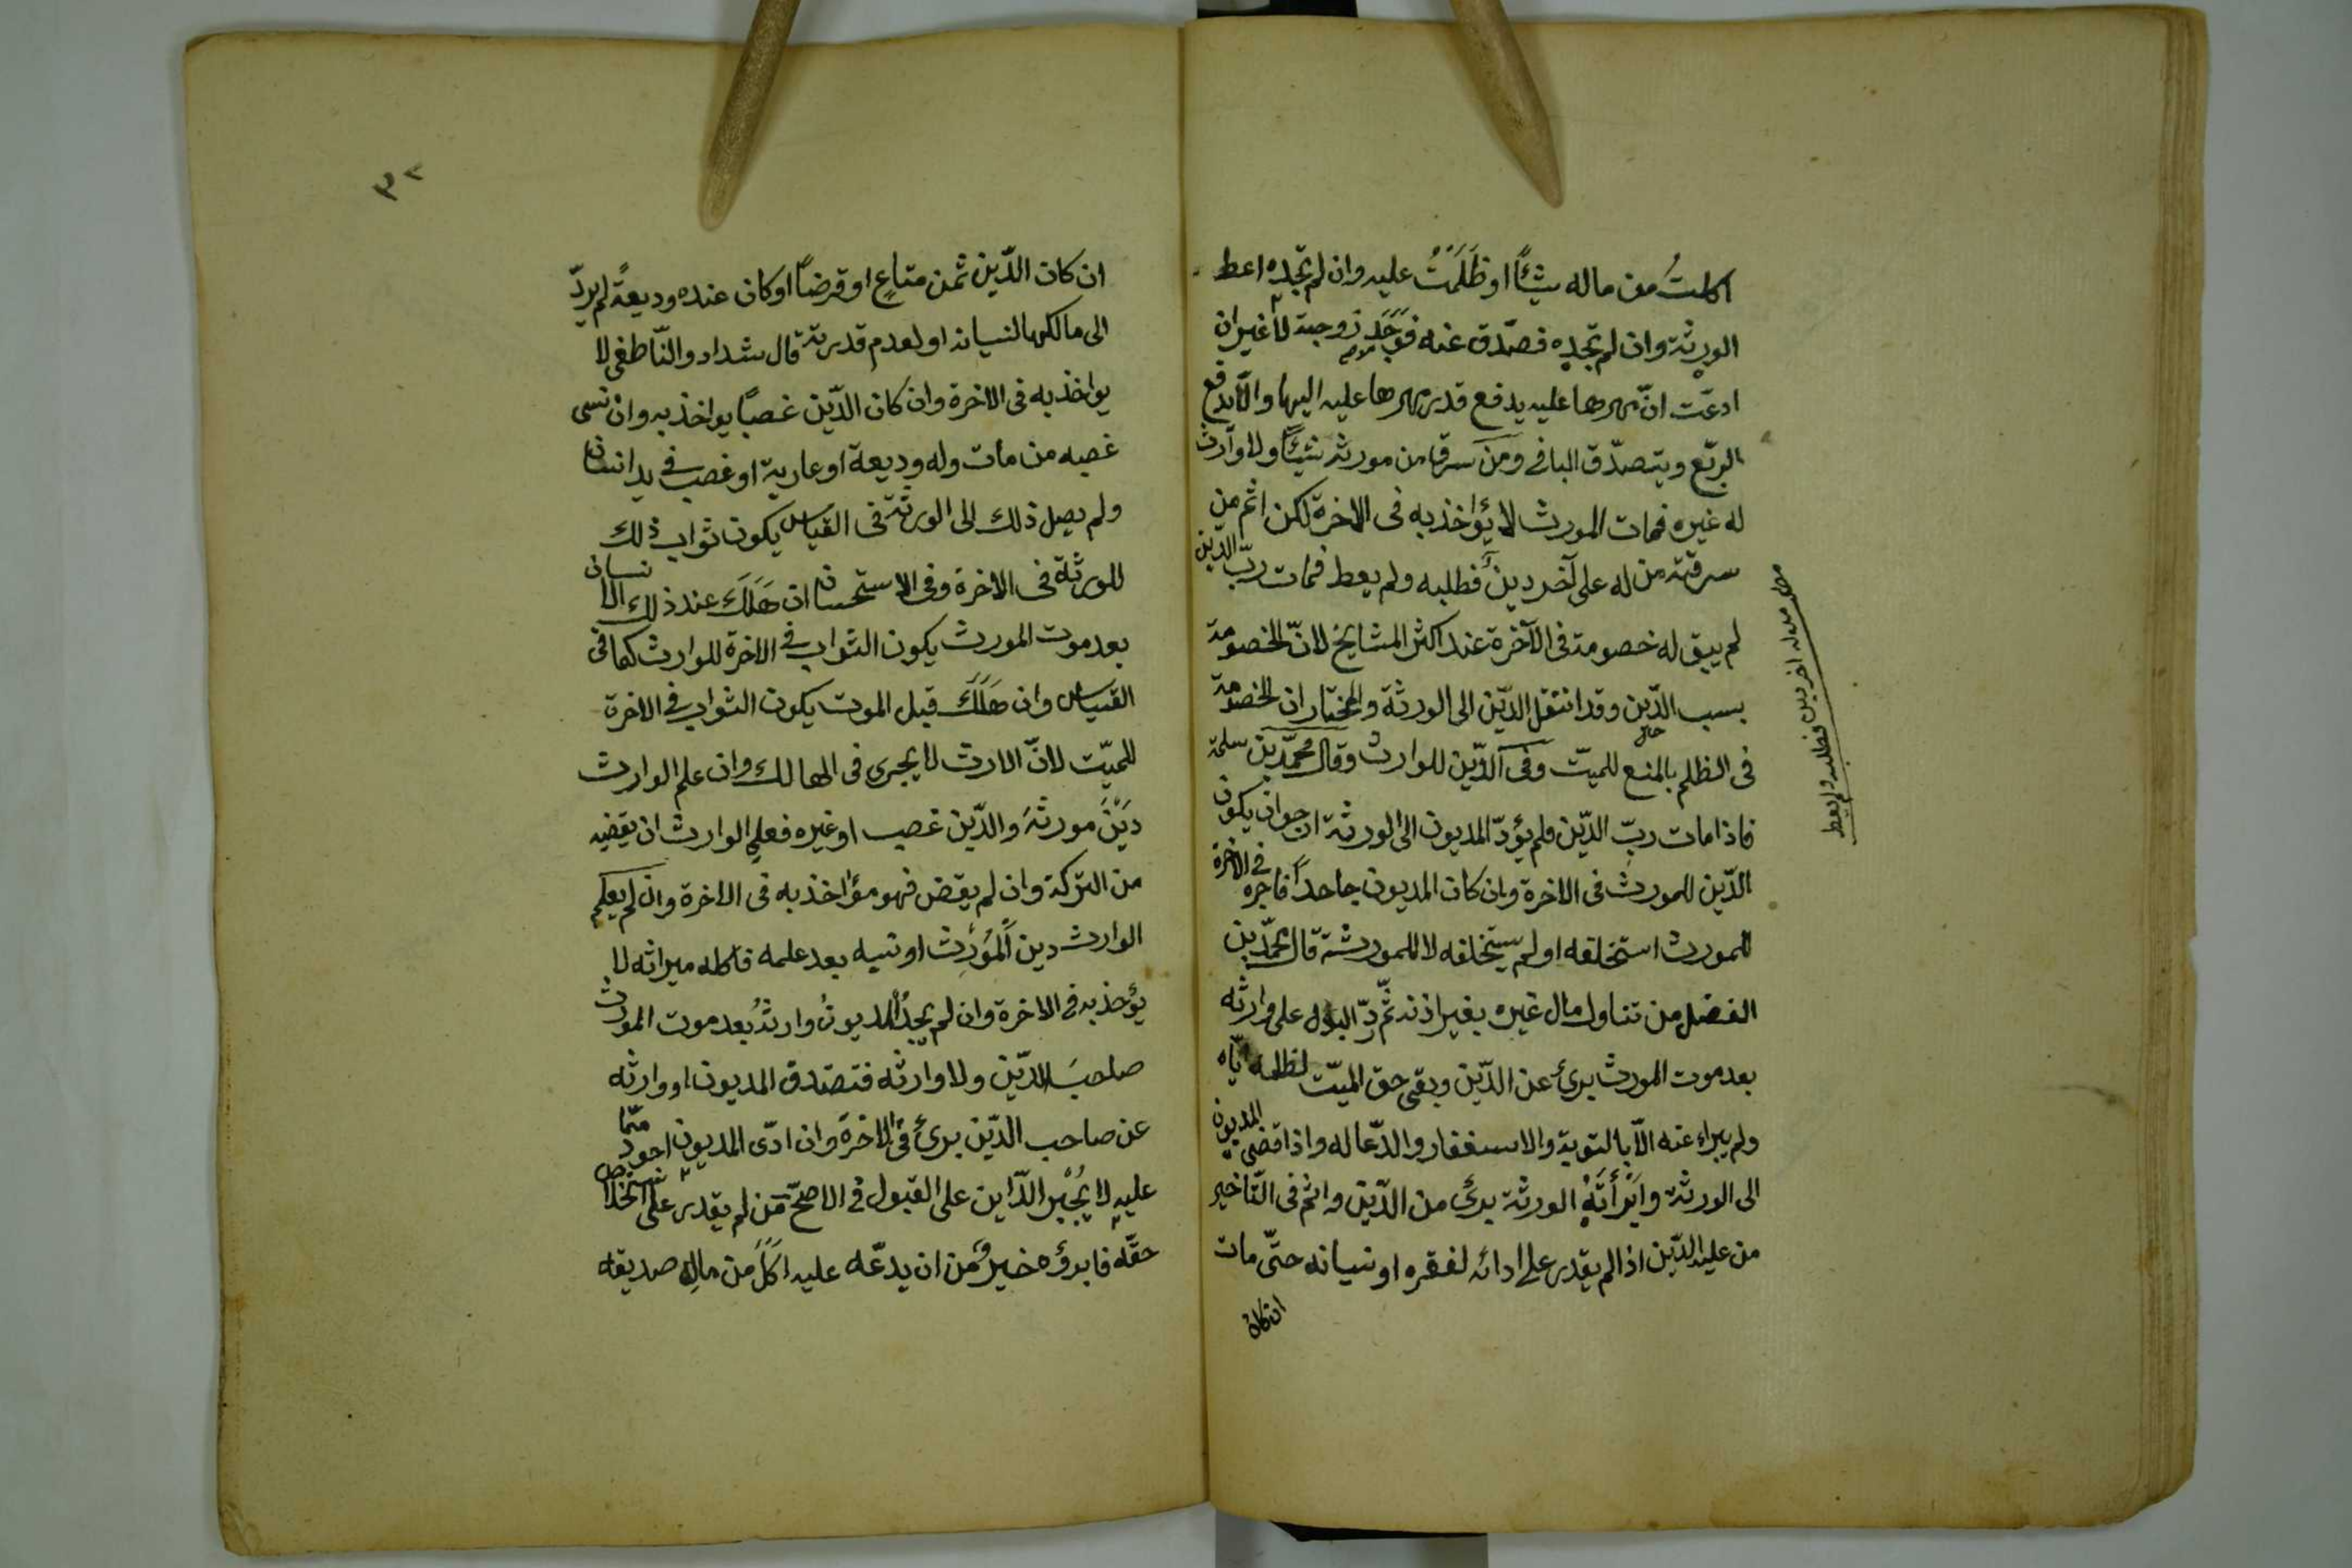 اكلتُ من ماله شيئًا او ظَلَمْتُ عليه وان لم تجده اعط
الورثة وان لم تجده فصدّق عنه فوَجَد زوجية لا غير ان
ادعّت انّ مهرها عليه يدفع قدر مهرها عليه اليها والّا يدفع
الربّع ويتصدّق الباقى ومَن سرق من مورثه شيئًا ولا وارث
له غيره فمات المورث لا يؤاخذ به فى الاخرة لكن اثم من
سرقته من له على آخر دين فطلبه ولم يعط فمات ربّ الدين
لم يبق له خصومة فى الآخرة عند اكثر المشايخ لانّ الخصومة
بسبب الدّين وقد انتقل الدّين الى الورثة والمختار ان الخصومة
فى الظلم بالمنع للميّت وفى الدّين للوارث وقال محمّد بن سلمة
فاذا مات ربّ الدّين ولم يؤدّ المديون الى الورثة ارجو ان يكون
الدّين للمورث فى الاخرة وان كان المديون جاحدًا فاجره فى الاخرة
للمورث استحلفه او لم يستحلفه لا للمورثة قال محمّد بن
الفضل من تناول مال غيره بغير اذنه ثمّ ردّ البدل على وارثه
بعد موت المورث برئ عن الدّين وبقى حق الميّت لظلمه ايّاه
ولم يبراء عنه الّا بالتوبة والاستغفار والدّعا له واذا قضى المديون
الى الورثة وابْرَأَتْهُ الورثة برئ من الدّين واثم فى التّأخير
من عليه الدّين اذا لم يقدر على ادائه لفقره او نسيانه حتّى مات
ان كان
من له اخر دين فطلبه ولم يعط
٣٢
ان كان الدّين ثمن متاعٍ او قرضًا او كان عنده وديعةً لم يردّ
الى مالكها لنسيانه او لعدم قدرته قال شداد والنّاطفى لا
يواخذ به فى الاخرة وان كان الدّين غصبًا يواخذ به وان نسى
غصبه من مات وله وديعة او عارية او غصب فى يد انسان
ولم يصل ذلك الى الورثة فى القياس يكون ثواب ذلك
للورثة فى الاخرة وفى الاستحسان ان هَلَكَ عند ذلك الانسان
بعد موت المورث يكون الثواب فى الاخرة للوارث كما فى
القياس وان هَلَكَ قبل الموت يكون الثواب فى الاخرة
للميّت لانّ الارث لا يجرى فى الهالك وان علم الوارث
دَيْنَ مورثهَ والدّين غصب او غيره فعلى الوارث ان يقضيه
من التركة وان لم يقض فهو مؤاخذ به فى الاخرة وان لم يعلم
الوارث دين المُوَرِّث او نسيه بعد علمه فاكله ميراثه لا
يؤخذ به فى الاخرة وان لم يجدُ المديونُ وارثهُ بعد موت المورث
صاحبَ الدّين ولا وارثه فتصدق المديون او وارثه
عن صاحب الدّين برئ فى الاخرة وان ادّى المديون اجود ممّا
عليه لا يُجْبر الدّاين على القبول فى الاصحّ مَن لم يقدر على استخلاص
حقّه فابرؤه خيرٌ من ان يدعّه عليه اكَلَ من مالِ صديقه